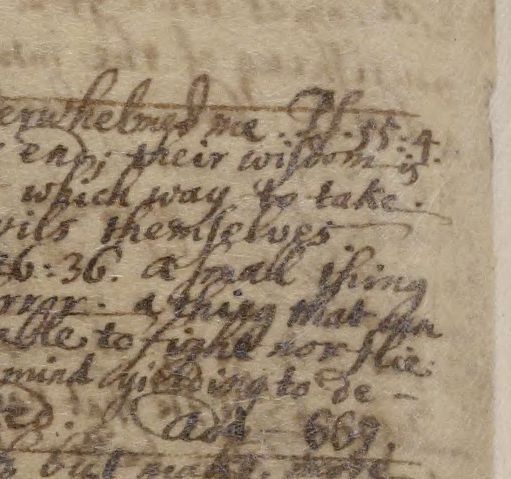 erwhelmed me. Ps. 55. 4.
end; their wisdom is
which way to take.
vils themselves
26: 36. a small thing
error. a thing that can
able to fight nor flie
mind yielding to de-
ed. Ad 669.
but many, more